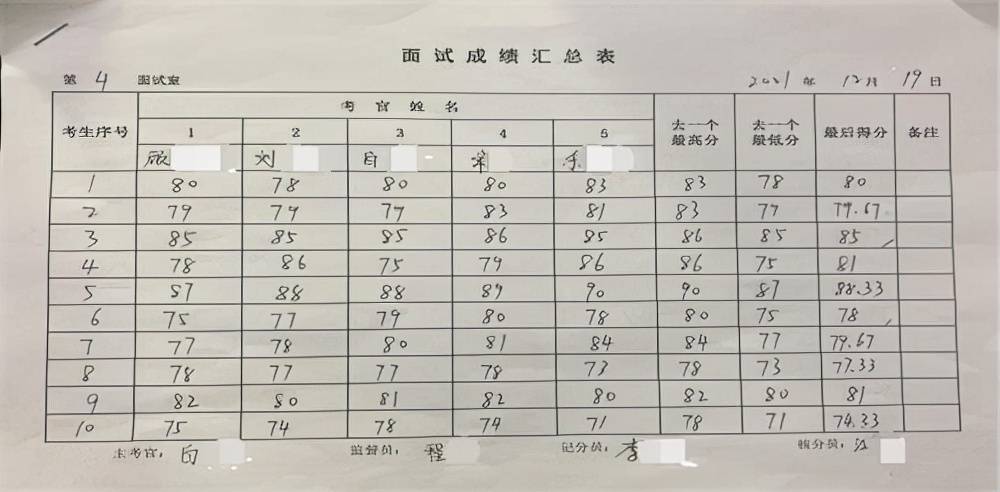 面试成绩汇总表
第 4 面试室 2021 年 12 月 19 日
考生序号 考官姓名 去一个最高分 去一个最低分 最后得分 备注
1 2 3 4 5
顾 刘 白 乐
1 80 78 80 80 83 83 78 80
2 79 79 79 83 81 83 79 79.67
3 85 85 85 86 85 86 85 85
4 78 86 75 79 86 86 75 81
5 87 88 88 89 90 90 87 88.33
6 75 77 79 80 78 80 75 78
7 77 78 80 81 84 84 77 79.67
8 78 77 77 78 73 78 73 77.33
9 82 80 81 82 80 82 80 81
10 75 74 78 74 71 78 71 74.33
主考官：白 监督员：程 记分员：李 核分员：江